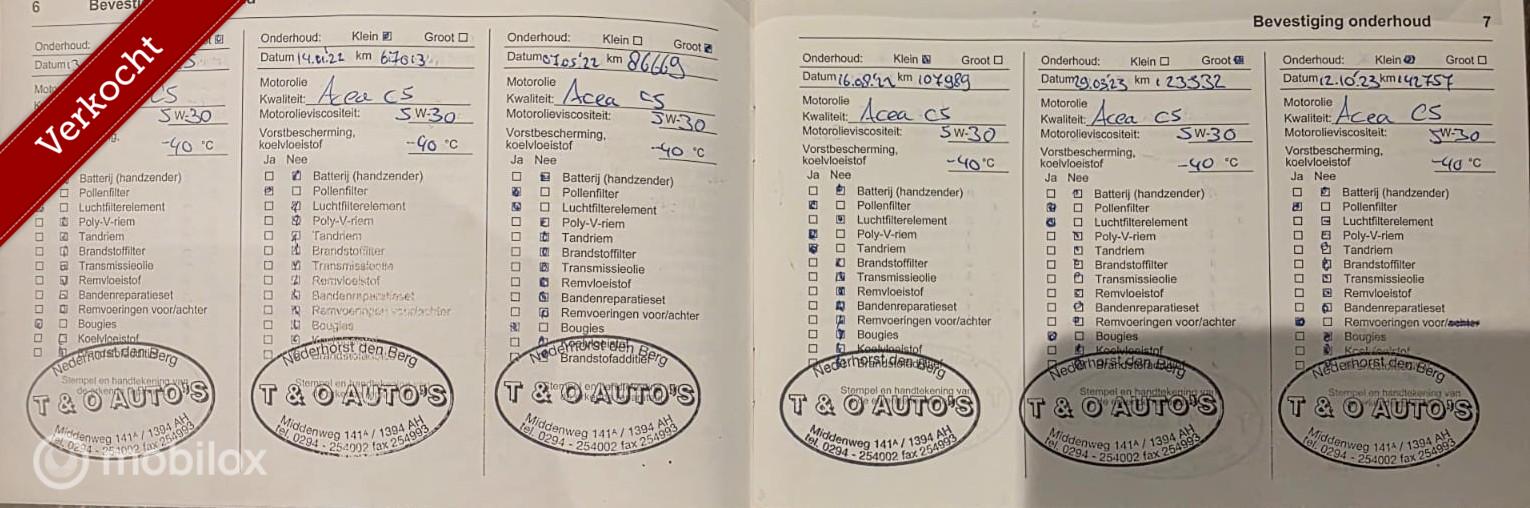 6
Verkocht
Onderhoud:
Datum
5W-30
-40 °C
Batterij (handzender)
Pollenfilter
Luchtfilterelement
Poly-V-riem
Tandriem
Brandstoffilter
Transmissieolie
Remvloeistof
Bandenreparatieset
Remvoeringen voor/achter
Bougies
Koelvloeistof
Nederhorst den Berg
Stempel en handtekening van
T & O AUTO'S
Middenweg 141A / 1394 AH
tel. 0294 - 254002 fax 254993
mobilox
Onderhoud: Klein Groot
Datum 14.01.'22 km 67013
Motorolie
Kwaliteit: Acea C5
Motorolieviscositeit: 5W-30
Vorstbescherming,
koelvloeistof -40 °C
Ja Nee
Batterij (handzender)
Pollenfilter
Luchtfilterelement
Poly-V-riem
Tandriem
Brandstoffilter
Transmissieolie
Remvloeistof
Bandenreparatieset
Remvoeringen voor/achter
Bougies
Nederhorst den Berg
Stempel en handtekening van
T & O AUTO'S
Middenweg 141A / 1394 AH
tel. 0294 - 254002 fax 254993
Onderhoud: Klein Groot
Datum 07.05'22 km 86669
Motorolie
Kwaliteit: Acea C5
Motorolieviscositeit: 5W-30
Vorstbescherming,
koelvloeistof -40 °C
Ja Nee
Batterij (handzender)
Pollenfilter
Luchtfilterelement
Poly-V-riem
Tandriem
Brandstoffilter
Transmissieolie
Remvloeistof
Bandenreparatieset
Remvoeringen voor/achter
Bougies
Koelvloeistof
Brandstofadditief
Nederhorst den Berg
T & O AUTO'S
Middenweg 141A / 1394 AH
tel. 0294 - 254002 fax 254993
Bevestiging onderhoud 7
Onderhoud: Klein Groot
Datum 16.09.'22 km 107989
Motorolie
Kwaliteit: Acea C5
Motorolieviscositeit: 5W-30
Vorstbescherming,
koelvloeistof -40 °C
Ja Nee
Batterij (handzender)
Pollenfilter
Luchtfilterelement
Poly-V-riem
Tandriem
Brandstoffilter
Transmissieolie
Remvloeistof
Bandenreparatieset
Remvoeringen voor/achter
Bougies
Koelvloeistof
Nederhorst den Berg
Stempel en handtekening van
T & O AUTO'S
Middenweg 141A / 1394 AH
tel. 0294 - 254002 fax 254993
Onderhoud: Klein Groot
Datum 29.03'23 km 123532
Motorolie
Kwaliteit: Acea C5
Motorolieviscositeit: 5W-30
Vorstbescherming,
koelvloeistof -40 °C
Ja Nee
Batterij (handzender)
Pollenfilter
Luchtfilterelement
Poly-V-riem
Tandriem
Brandstoffilter
Transmissieolie
Remvloeistof
Bandenreparatieset
Remvoeringen voor/achter
Bougies
Koelvloeistof
Nederhorst den Berg
Stempel en handtekening van
T & O AUTO'S
Middenweg 141A / 1394 AH
tel. 0294 - 254002 fax 254993
Onderhoud: Klein Groot
Datum 12.10.'23 km 142757
Motorolie
Kwaliteit: Acea C5
Motorolieviscositeit: 5W-30
Vorstbescherming,
koelvloeistof -40 °C
Ja Nee
Batterij (handzender)
Pollenfilter
Luchtfilterelement
Poly-V-riem
Tandriem
Brandstoffilter
Transmissieolie
Remvloeistof
Bandenreparatieset
Remvoeringen voor/achter
Bougies
Koelvloeistof
Nederhorst den Berg
Stempel en handtekening van
T & O AUTO'S
Middenweg 141A / 1394 AH
tel. 0294 - 254002 fax 254993